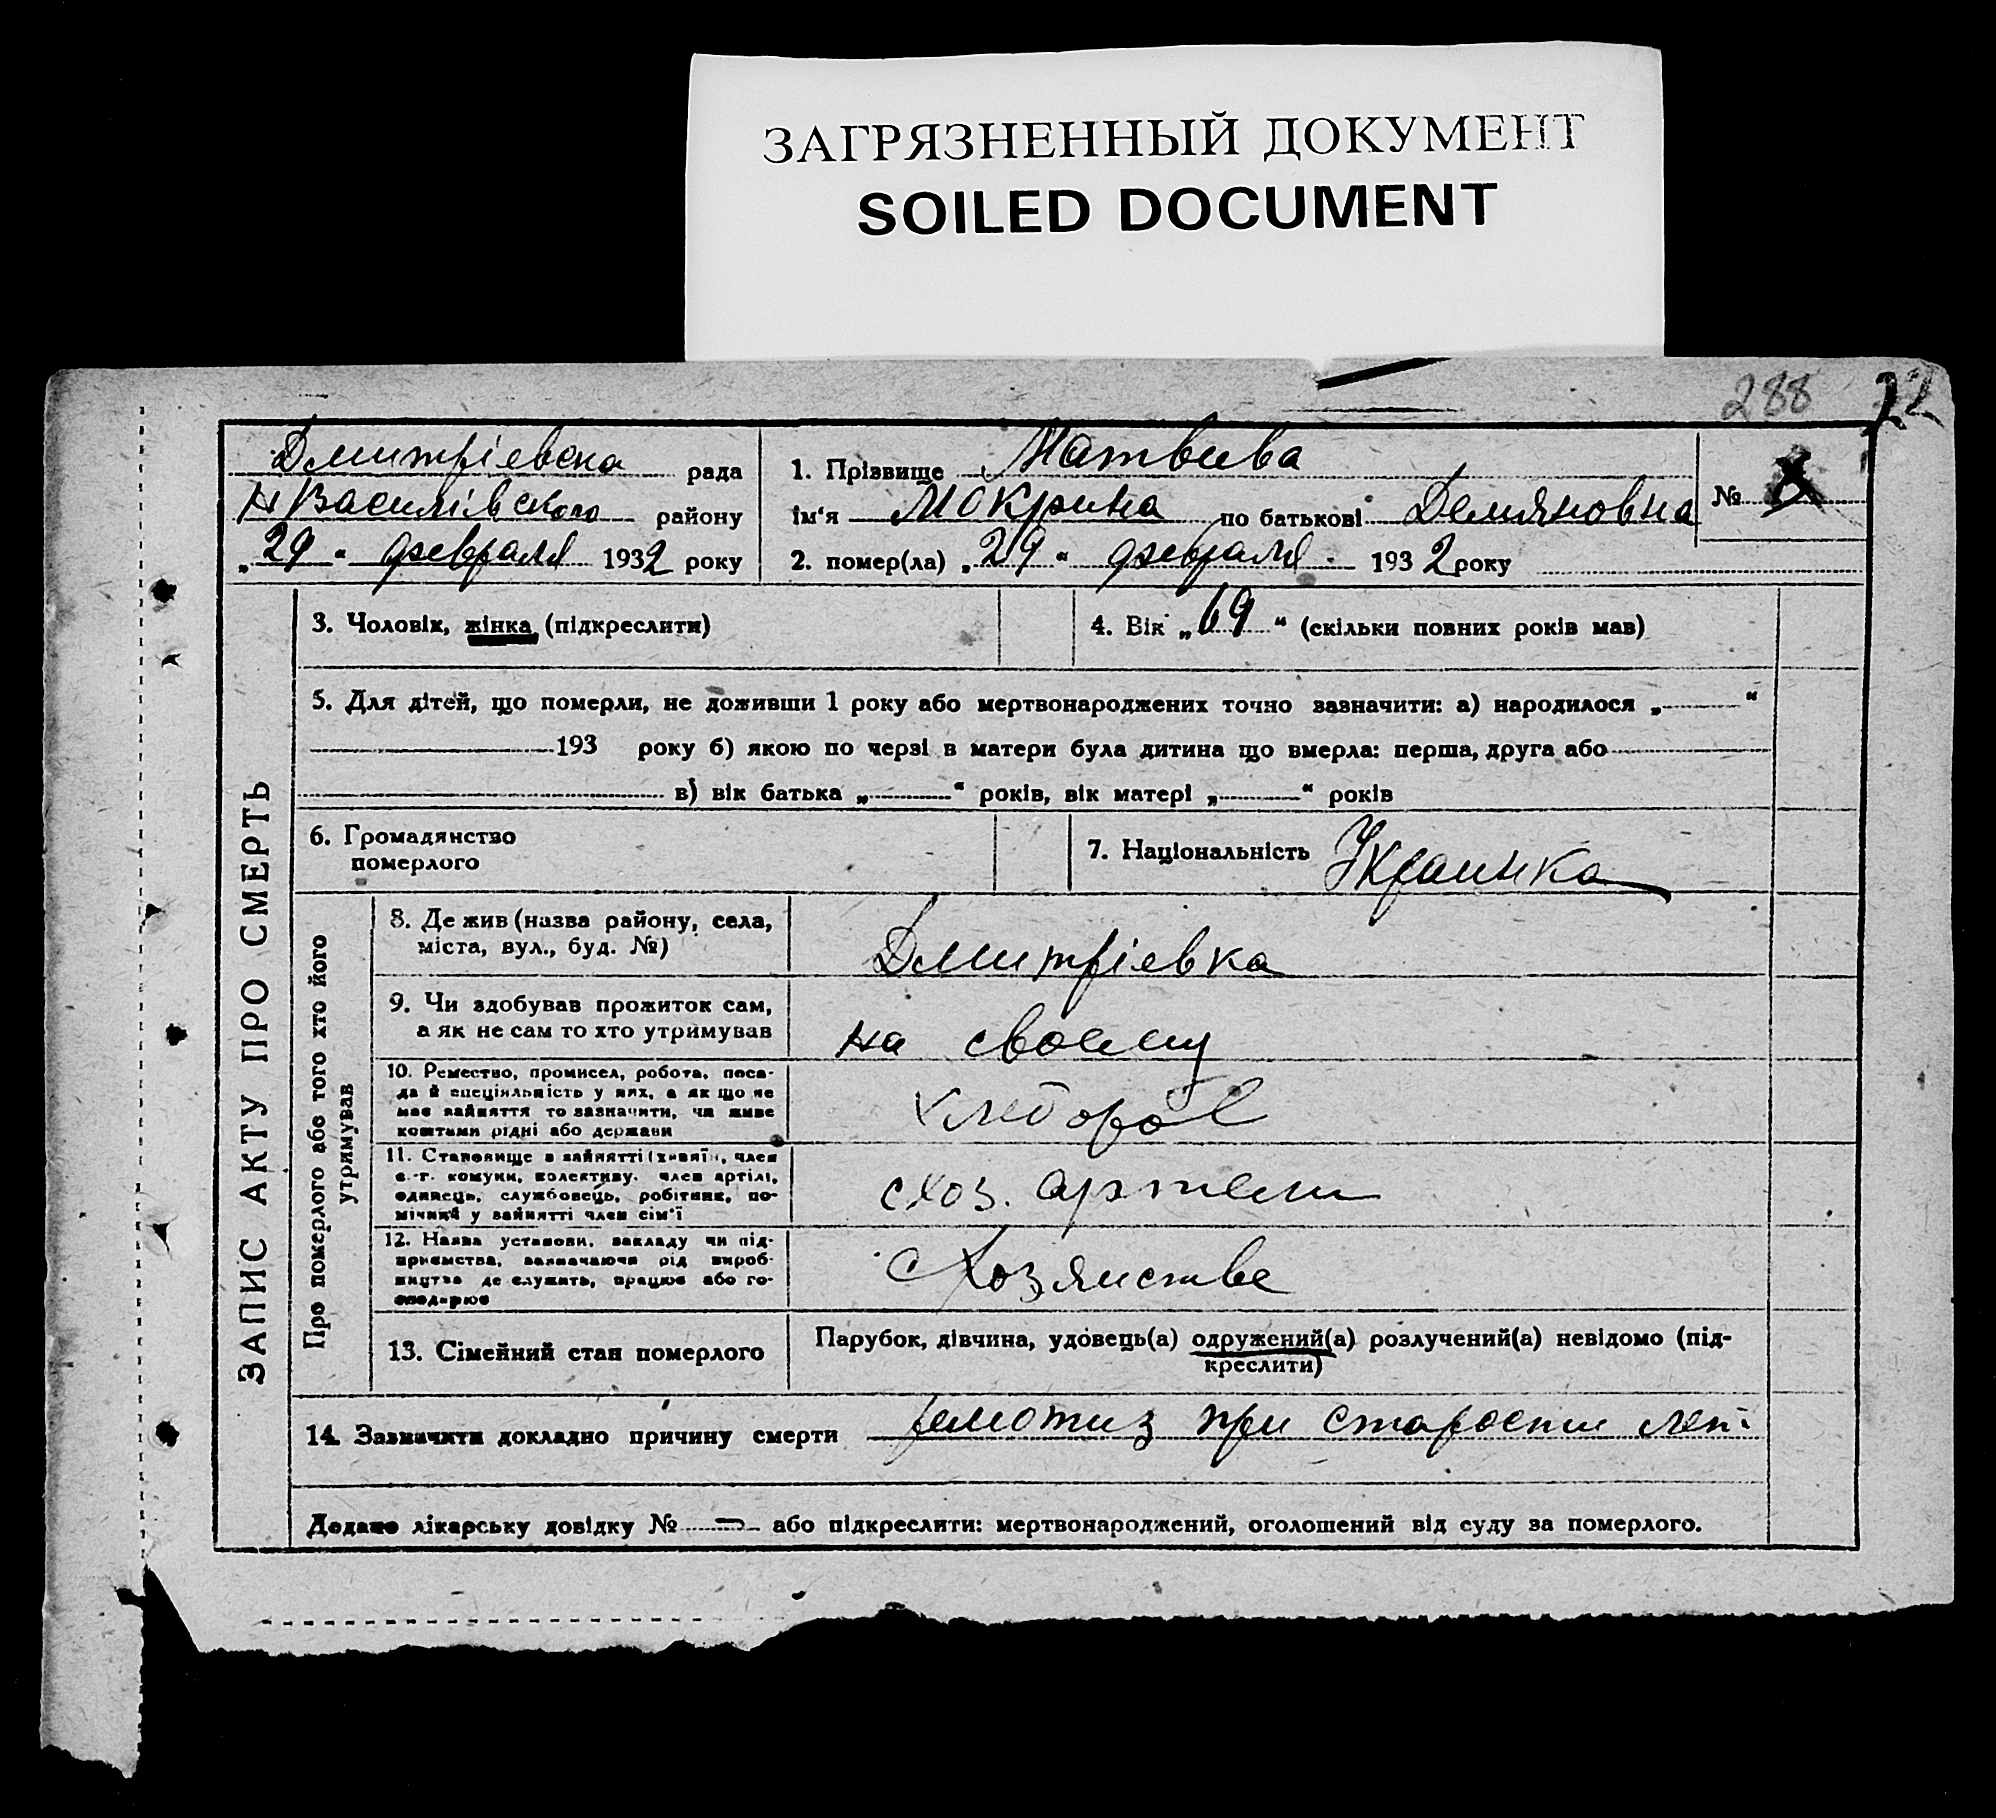 ЗАГРЯЗНЕННЫЙ ДОКУМЕНТ
SOILED DOCUMENT
288 22
Дмитріевска рада
Н Василівського району
„29“ февраля 1932 року
1. Прізвище Матвиева
ім'я Мокрина по батькові Демяновна
2. помер(ла) „29“ февраля 1932 року
№
ЗАПИС АКТУ ПРО СМЕРТЬ
3. Чоловік, жінка (підкреслити)
4. Вік „69“ (скільки повних років мав)
5. Для дітей, що померли, не доживши 1 року або мертвонароджених точно зазначити: а) народилося „ “
193 року б) якою по черзі в матери була дитина що вмерла: перша, друга або
в) вік батька „ “ років, вік матері „ “ років
6. Громадянство
померлого
7. Національність Украинка
Про померлого або того хто його
утримував
8. Де жив (назва району, села,
міста, вул., буд. №)
Дмитріевка
9. Чи здобував прожиток сам,
а як не сам то хто утримував
на своему
10. Ремество, промисел, робота, поса-
да й спеціяльність у них, а як що не
має зайняття то зазначити, чи живе
коштами рідні або держави
хлебороб
11. Становище в зайнятті (хазяїн, член
с.-г. комуни, колективу, член артілі,
одинець, службовець, робітник, по-
мічний у зайнятті член сім'ї
схоз. артели
12. Назва установи, закладу чи під-
приємства, зазначаючи рід вироб-
ництва де служить, працює або го-
сподарює
С Хозяистве
13. Сімейний стан померлого
Парубок, дівчина, удовець(а) одружений(а) розлучений(а) невідомо (під-
креслити)
14. Зазначити докладно причину смерти ремотиз при старости лет
Додано лікарську довідку № — або підкреслити: мертвонароджений, оголошений від суду за померлого.